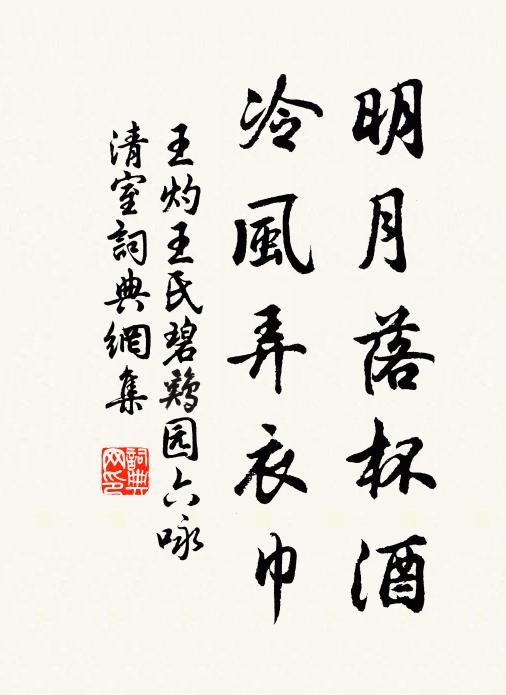 明月落杯酒
冷風弄衣巾
王灼王氏碧鷄园六咏
清室詞典網集
詞典网印